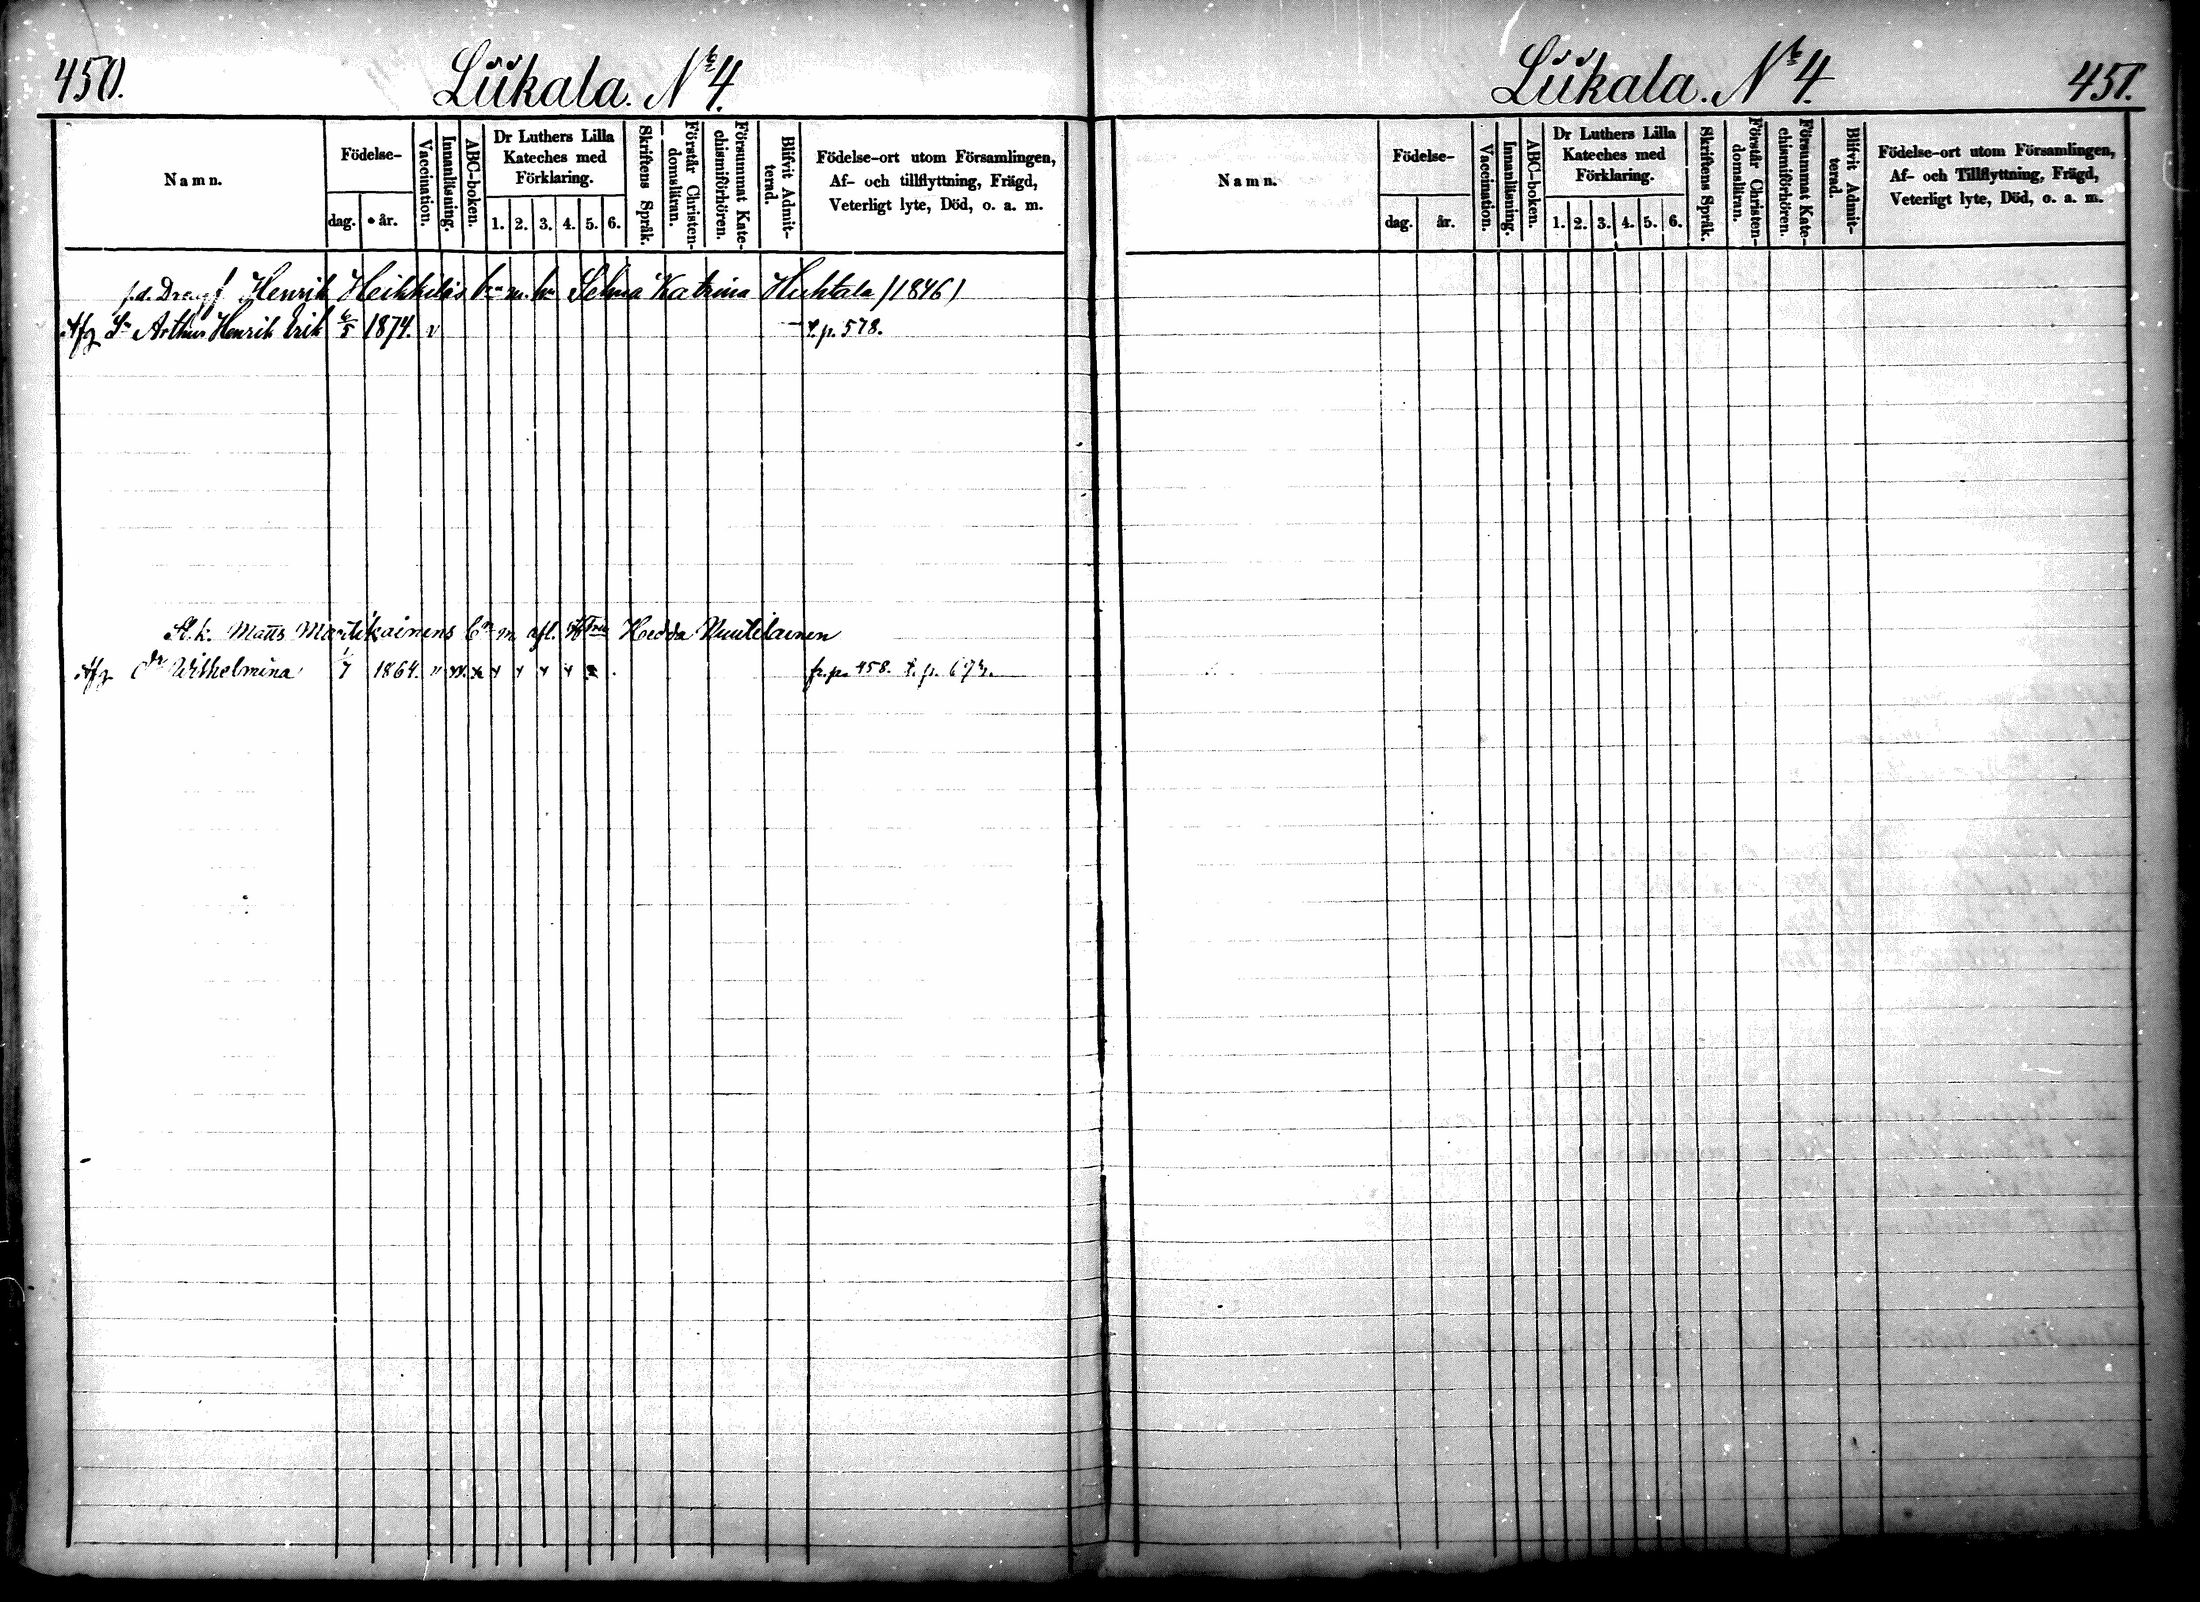 450.
Liikala. No 4.
Namn.
Födelse-
dag.
år.
Vaccination.
Innanläsning.
ABC-boken.
Dr Luthers Lilla
Kateches med
Förklaring.
1. 2. 3. 4. 5. 6.
Skriftens Språk.
Förstår Christen-
domsläran.
Försummat Kate-
chismiförhören.
Blifvit Admit-
terad.
Födelse-ort utom Församlingen,
Af- och tillflyttning, Frägd,
Veterligt lyte, Död, o. a. m.
f.d. Henrik Heikkiläs bn m. hu Selma Katrina Huhtala (1846)
Afg Sn Arthur Henrik Erik 6/5 1874. v t.p. 578.
Matts Martikainens bn m. afl. Hu Hedda Vuutilainen
Afg dr Wilhelmina 1/7 1864. fr.p. 458. t.p.
Liikala. No 4.
451.
Namn.
Födelse-
dag.
år.
Vaccination.
Innanläsning.
ABC-boken.
Dr Luthers Lilla
Kateches med
Förklaring.
1. 2. 3. 4. 5. 6.
Skriftens Språk.
Förstår Christen-
domsläran.
Försummat Kate-
chismiförhören.
Blifvit Admit-
terad.
Födelse-ort utom Församlingen,
Af- och Tillflyttning, Frägd,
Veterligt lyte, Död, o. a. m.